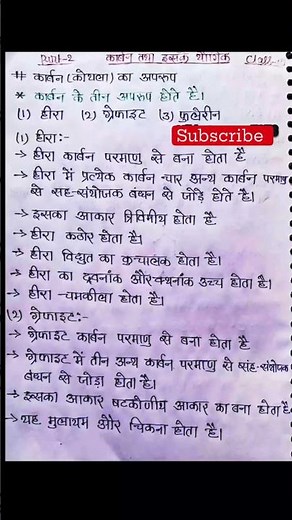 Part-2 कार्बन तथा इसके यौगिक Class
# कार्बन (कोयला) का अपरूप
* कार्बन के तीन अपरूप होते है।
(1) हीरा (2) ग्रेफाइट (3) फुलेरीन
Subscribe
(1) हीरा:-
→ हीरा कार्बन परमाणु से बना होता है
→ हीरा में प्रत्येक कार्बन चार अन्य कार्बन परमाणु
से सह-संयोजक बंधन से जोड़े होते है।
→ इसका आकार त्रिविमीय होता है
→ हीरा कठोर होता है।
→ हीरा विद्युत का कुचालक होता है।
→ हीरा का द्रवनांक और क्वथनांक उच्च होता है।
→ हीरा चमकीला होता है।
(2) ग्रेफाइट:-
→ ग्रेफाइट कार्बन परमाणु से बना होता है
→ ग्रेफाइट में तीन अन्य कार्बन परमाणु से सह-संयोजक
बंधन से जोड़ा होता है।
→ इसका आकार षटकोणीय आकार का बना होता है
→ यह मुलायम और चिकना होता है।